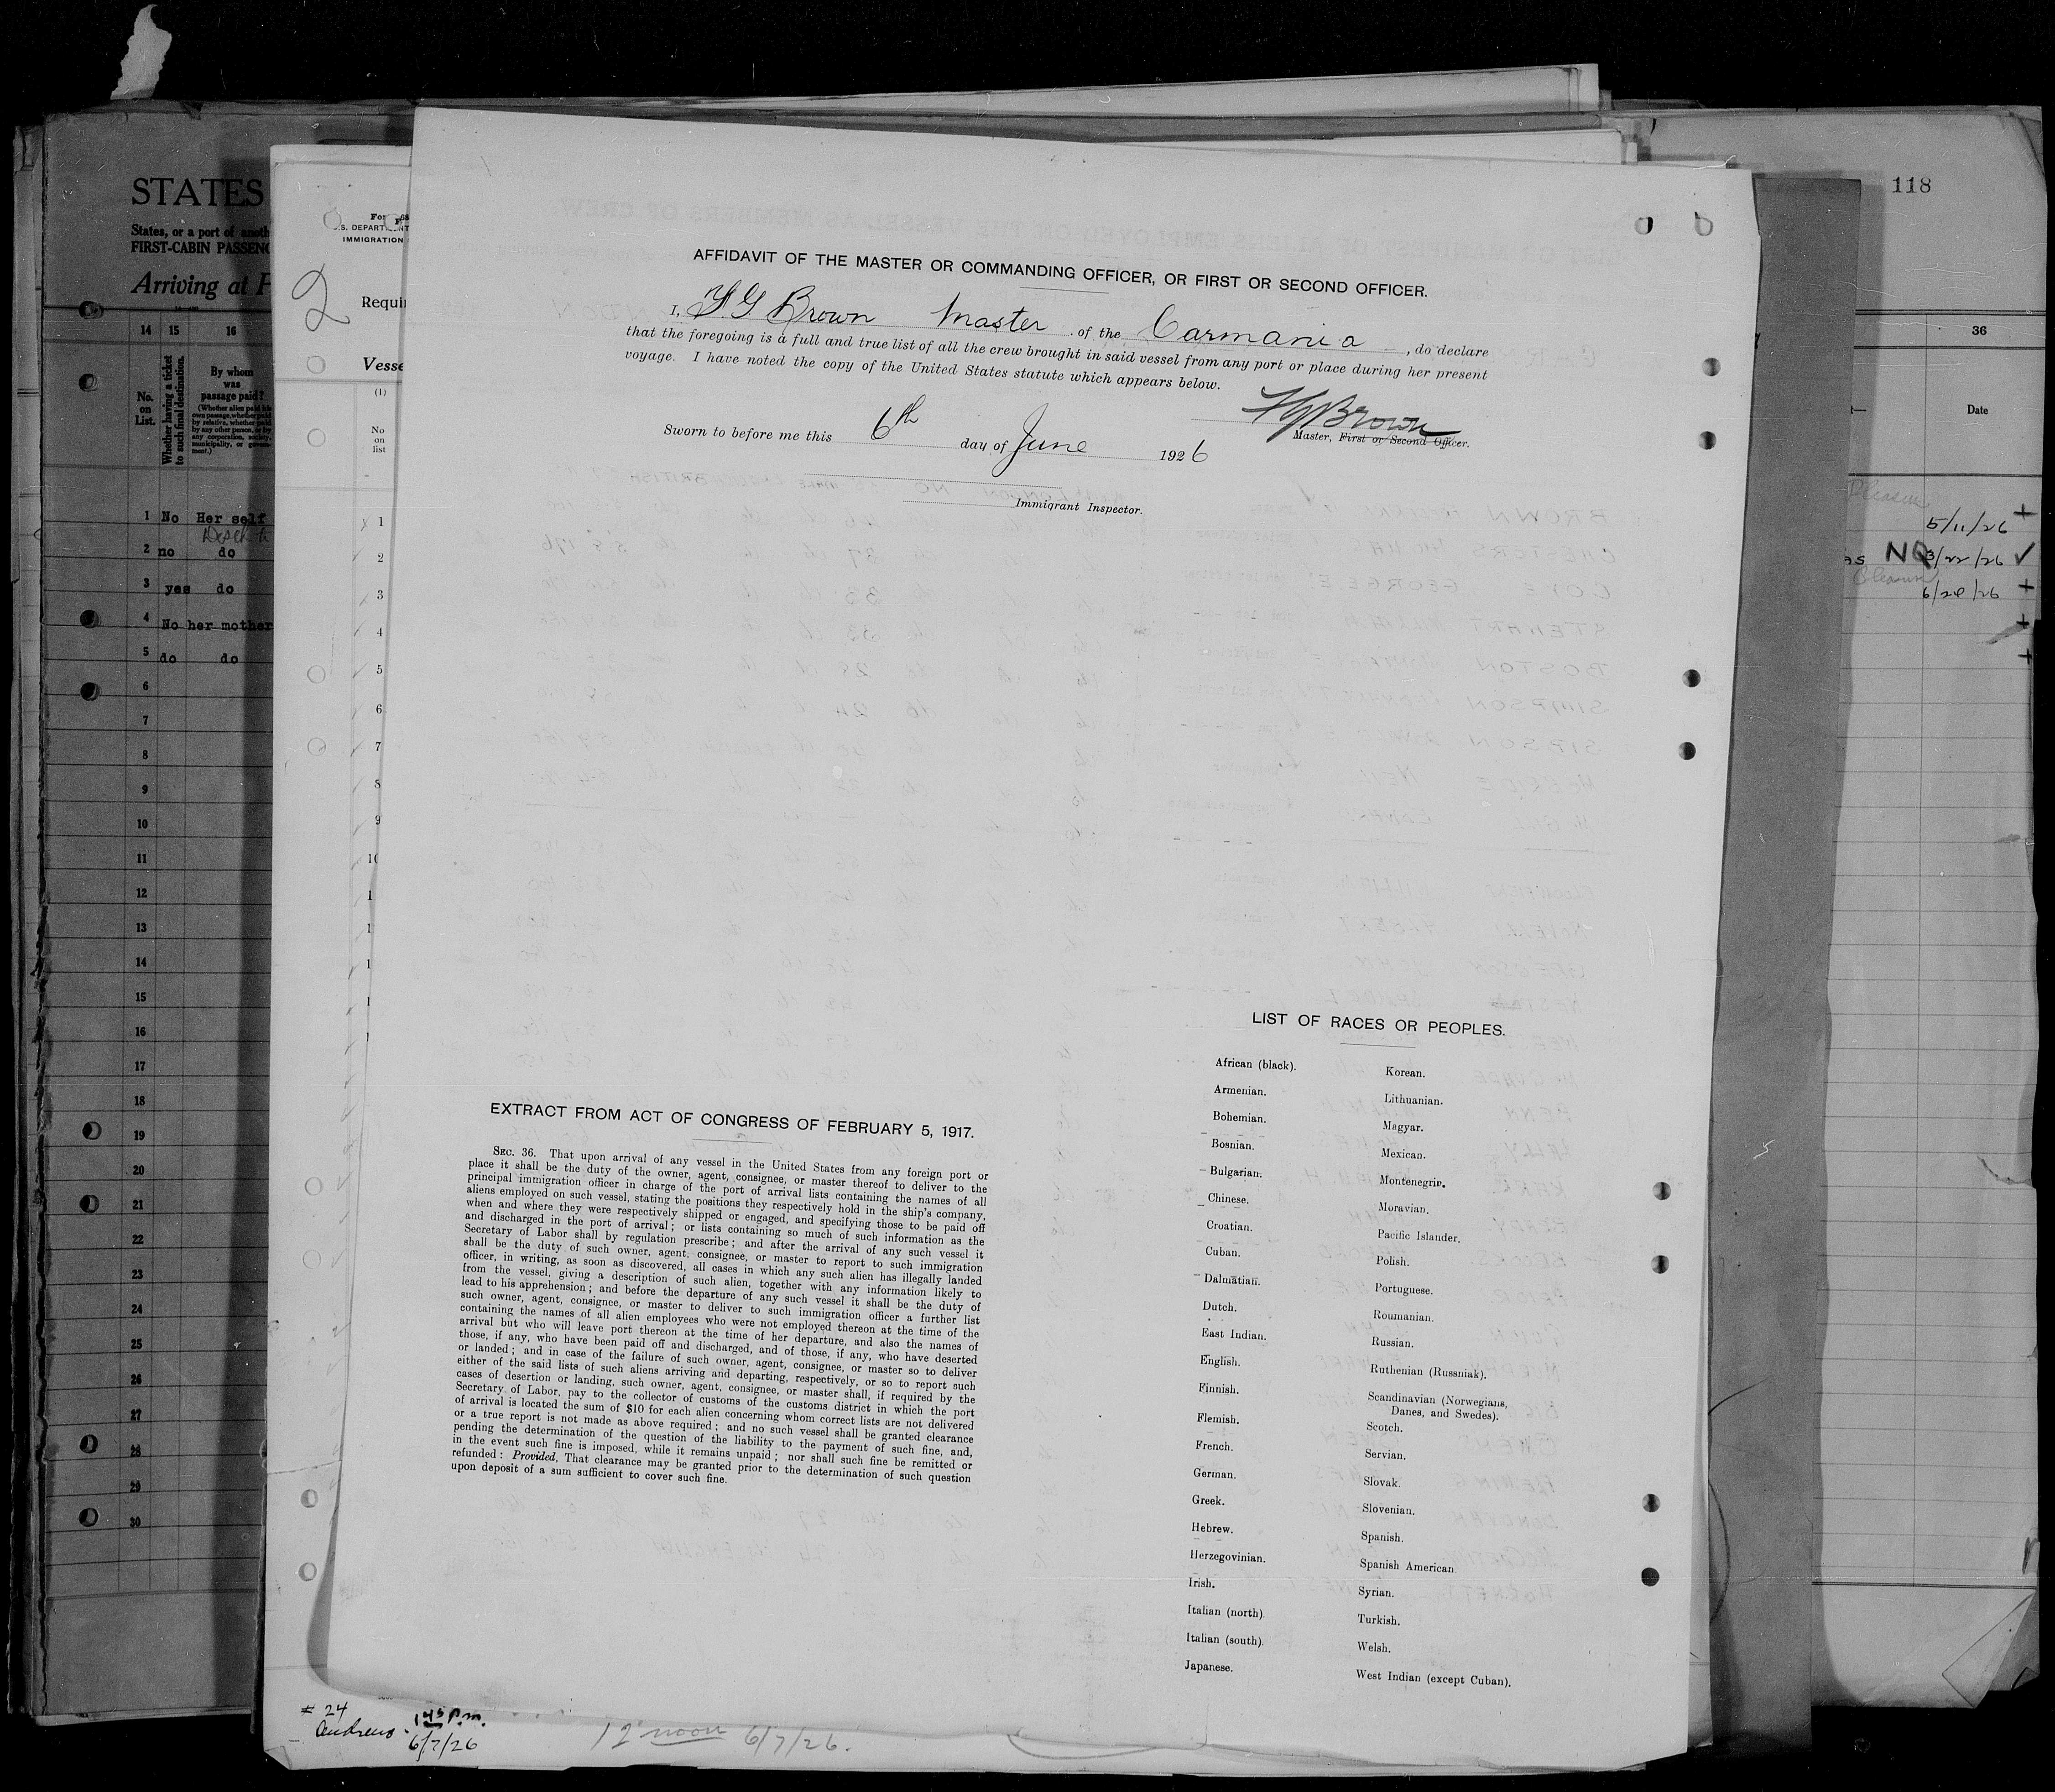 STATES
States, or a port of anoth
FIRST-CABIN PASSENG
Arriving at P
14 15 16
No. on List.
Whether having a ticket to such final destination.
By whom was passage paid?
(Whether alien paid his own passage, whether paid by relative, whether paid by any other person, or by any corporation, society, municipality, or government.)
1 No Her self
2 no do
3 yes do
4 No her mother
5 do do
6
7
8
9
10
11
12
13
14
15
16
17
18
19
20
21
22
23
24
25
26
27
28
29
30
S. DEPARTMENT
IMMIGRATION
2
Requir
Vesse
(1)
No on list
1
2
3
4
5
6
7
8
9
# 24
Andrews
1 45 P.m.
6/7/26
12 noon 6/7/26.
AFFIDAVIT OF THE MASTER OR COMMANDING OFFICER, OR FIRST OR SECOND OFFICER.
I, F G Brown Master of the Carmania, do declare
that the foregoing is a full and true list of all the crew brought in said vessel from any port or place during her present
voyage. I have noted the copy of the United States statute which appears below.
F G Brown
Master, First or Second Officer.
Sworn to before me this 6th day of June 1926
Immigrant Inspector.
EXTRACT FROM ACT OF CONGRESS OF FEBRUARY 5, 1917.
SEC. 36. That upon arrival of any vessel in the United States from any foreign port or
place it shall be the duty of the owner, agent, consignee, or master thereof to deliver to the
principal immigration officer in charge of the port of arrival lists containing the names of all
aliens employed on such vessel, stating the positions they respectively hold in the ship's company,
when and where they were respectively shipped or engaged, and specifying those to be paid off
and discharged in the port of arrival; or lists containing so much of such information as the
Secretary of Labor shall by regulation prescribe; and after the arrival of any such vessel it
shall be the duty of such owner, agent, consignee, or master to report to such immigration
officer, in writing, as soon as discovered, all cases in which any such alien has illegally landed
from the vessel, giving a description of such alien, together with any information likely to
lead to his apprehension; and before the departure of any such vessel it shall be the duty of
such owner, agent, consignee, or master to deliver to such immigration officer a further list
containing the names of all alien employees who were not employed thereon at the time of the
arrival but who will leave port thereon at the time of her departure, and also the names of
those, if any, who have been paid off and discharged, and of those, if any, who have deserted
or landed; and in case of the failure of such owner, agent, consignee, or master so to deliver
either of the said lists of such aliens arriving and departing, respectively, or so to report such
cases of desertion or landing, such owner, agent, consignee, or master shall, if required by the
Secretary of Labor, pay to the collector of customs of the customs district in which the port
of arrival is located the sum of $10 for each alien concerning whom correct lists are not delivered
or a true report is not made as above required; and no such vessel shall be granted clearance
pending the determination of the question of the liability to the payment of such fine, and,
in the event such fine is imposed, while it remains unpaid; nor shall such fine be remitted or
refunded: Provided, That clearance may be granted prior to the determination of such question
upon deposit of a sum sufficient to cover such fine.
LIST OF RACES OR PEOPLES.
African (black).
Armenian.
Bohemian.
Bosnian.
Bulgarian.
Chinese.
Croatian.
Cuban.
Dalmatian.
Dutch.
East Indian.
English.
Finnish.
Flemish.
French.
German.
Greek.
Hebrew.
Herzegovinian.
Irish.
Italian (north).
Italian (south).
Japanese.
Korean.
Lithuanian.
Magyar.
Mexican.
Montenegrin.
Moravian.
Pacific Islander.
Polish.
Portuguese.
Roumanian.
Russian.
Ruthenian (Russniak).
Scandinavian (Norwegians,
Danes, and Swedes).
Scotch.
Servian.
Slovak.
Slovenian.
Spanish.
Spanish American.
Syrian.
Turkish.
Welsh.
West Indian (except Cuban).
118
36
Date
Pleasure
5/11/26
NQ 3/22/26
Pleasure
6/28/26